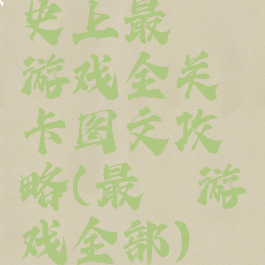 史上最
游戏全关
卡图文攻
略(最 游
戏全部)